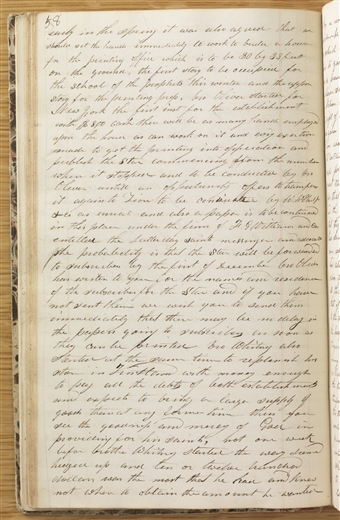 58
early in the spring it was also agreed that we
should set the hands immediately to work to build a house
for the printing office which is to be 30 by 38 feet
on the ground, the first story to be occupied for
the school of the prophets this winter and the upper
story for the printing press, bro Oliver started for
New York the first inst for the establishment
with $800 cash there will be as many hands employed
upon the house as can work on it and every exertion
made to get the printing into opperation and
publish the Star commencing from the number
when it stopped and to be conducted by bro
Oliver untill an opportunity offers to transfer
it again to Zion to be conducted by W W Phelps
& co as usual and also a paper is to be continued
in this place under the firm of F G Williams and co
entitled the Latterday Saint messenger and advocate
the probability is that the Star will be forwarded
to subscribers by the first of December bro Oliver
has written to you for the names and residence
of the subscribers for the Star and if you have
not sent them we wish you to send them
immediately that there may be no delay in
the papers going to subscribers as soon as
they can be printed bro Whitney also
started at the same time to replenish his
store in Kirtland with money enough
to pay all the debts of both establishments
and expects to bring a larger supply of
goods than at any former time thus you
see the goodness and mercy of God in
providing for his saints, not one week
before brother Whitney started the way seemed
hedged up and ten or twelve hundred
dollars was the most that he had and knew
not where to obtain the amount he wanted